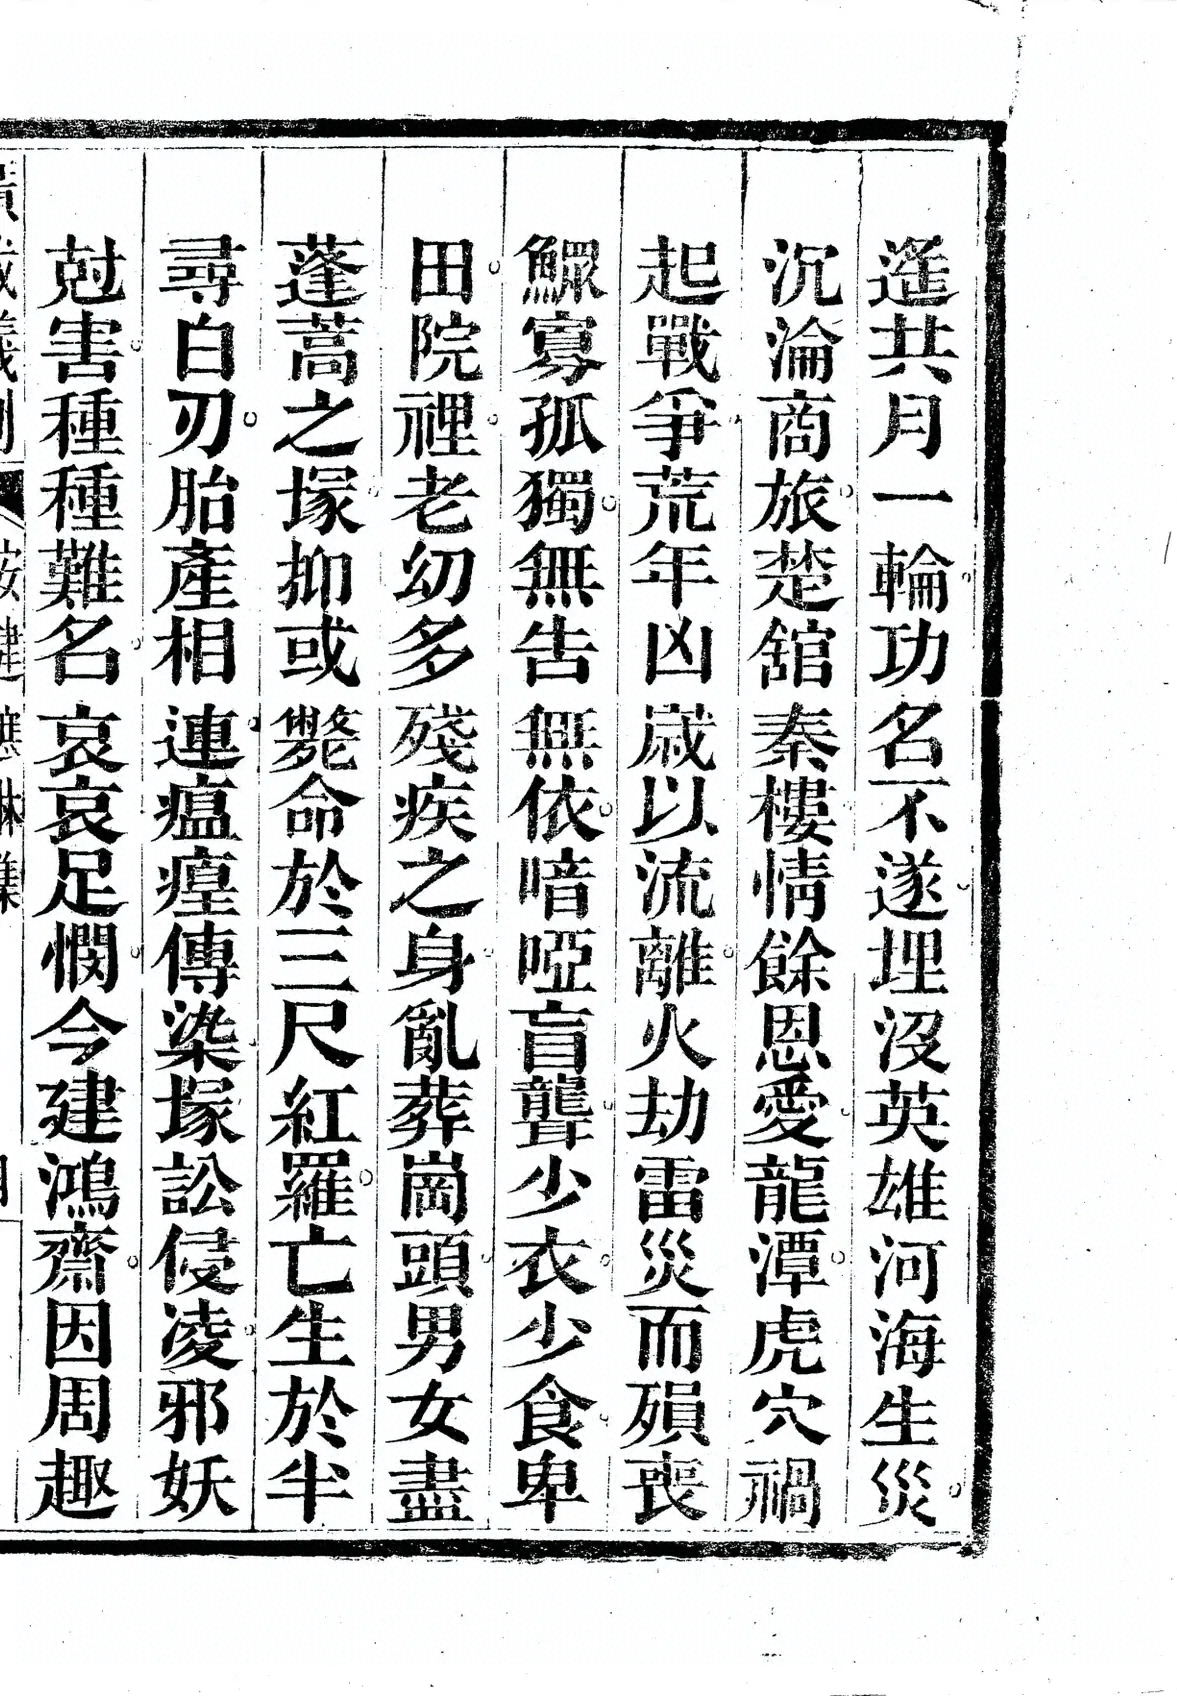 遙共月一輪功名不遂埋沒英雄河海生災
沉淪商旅楚舘秦樓情餘恩愛龍潭虎穴禍
起戰爭荒年凶歲以流離火劫雷災而殞喪
鰥寡孤獨無告無依喑啞盲聾少衣少食卑
田院裡老幼多殘疾之身亂葬崗頭男女盡
蓬蒿之塚抑或斃命於三尺紅羅亡生於半
尋白刃胎產相連瘟瘟傳染塚訟侵凌邪妖
尅害種種難名哀哀足憫今建鴻齋因周趣